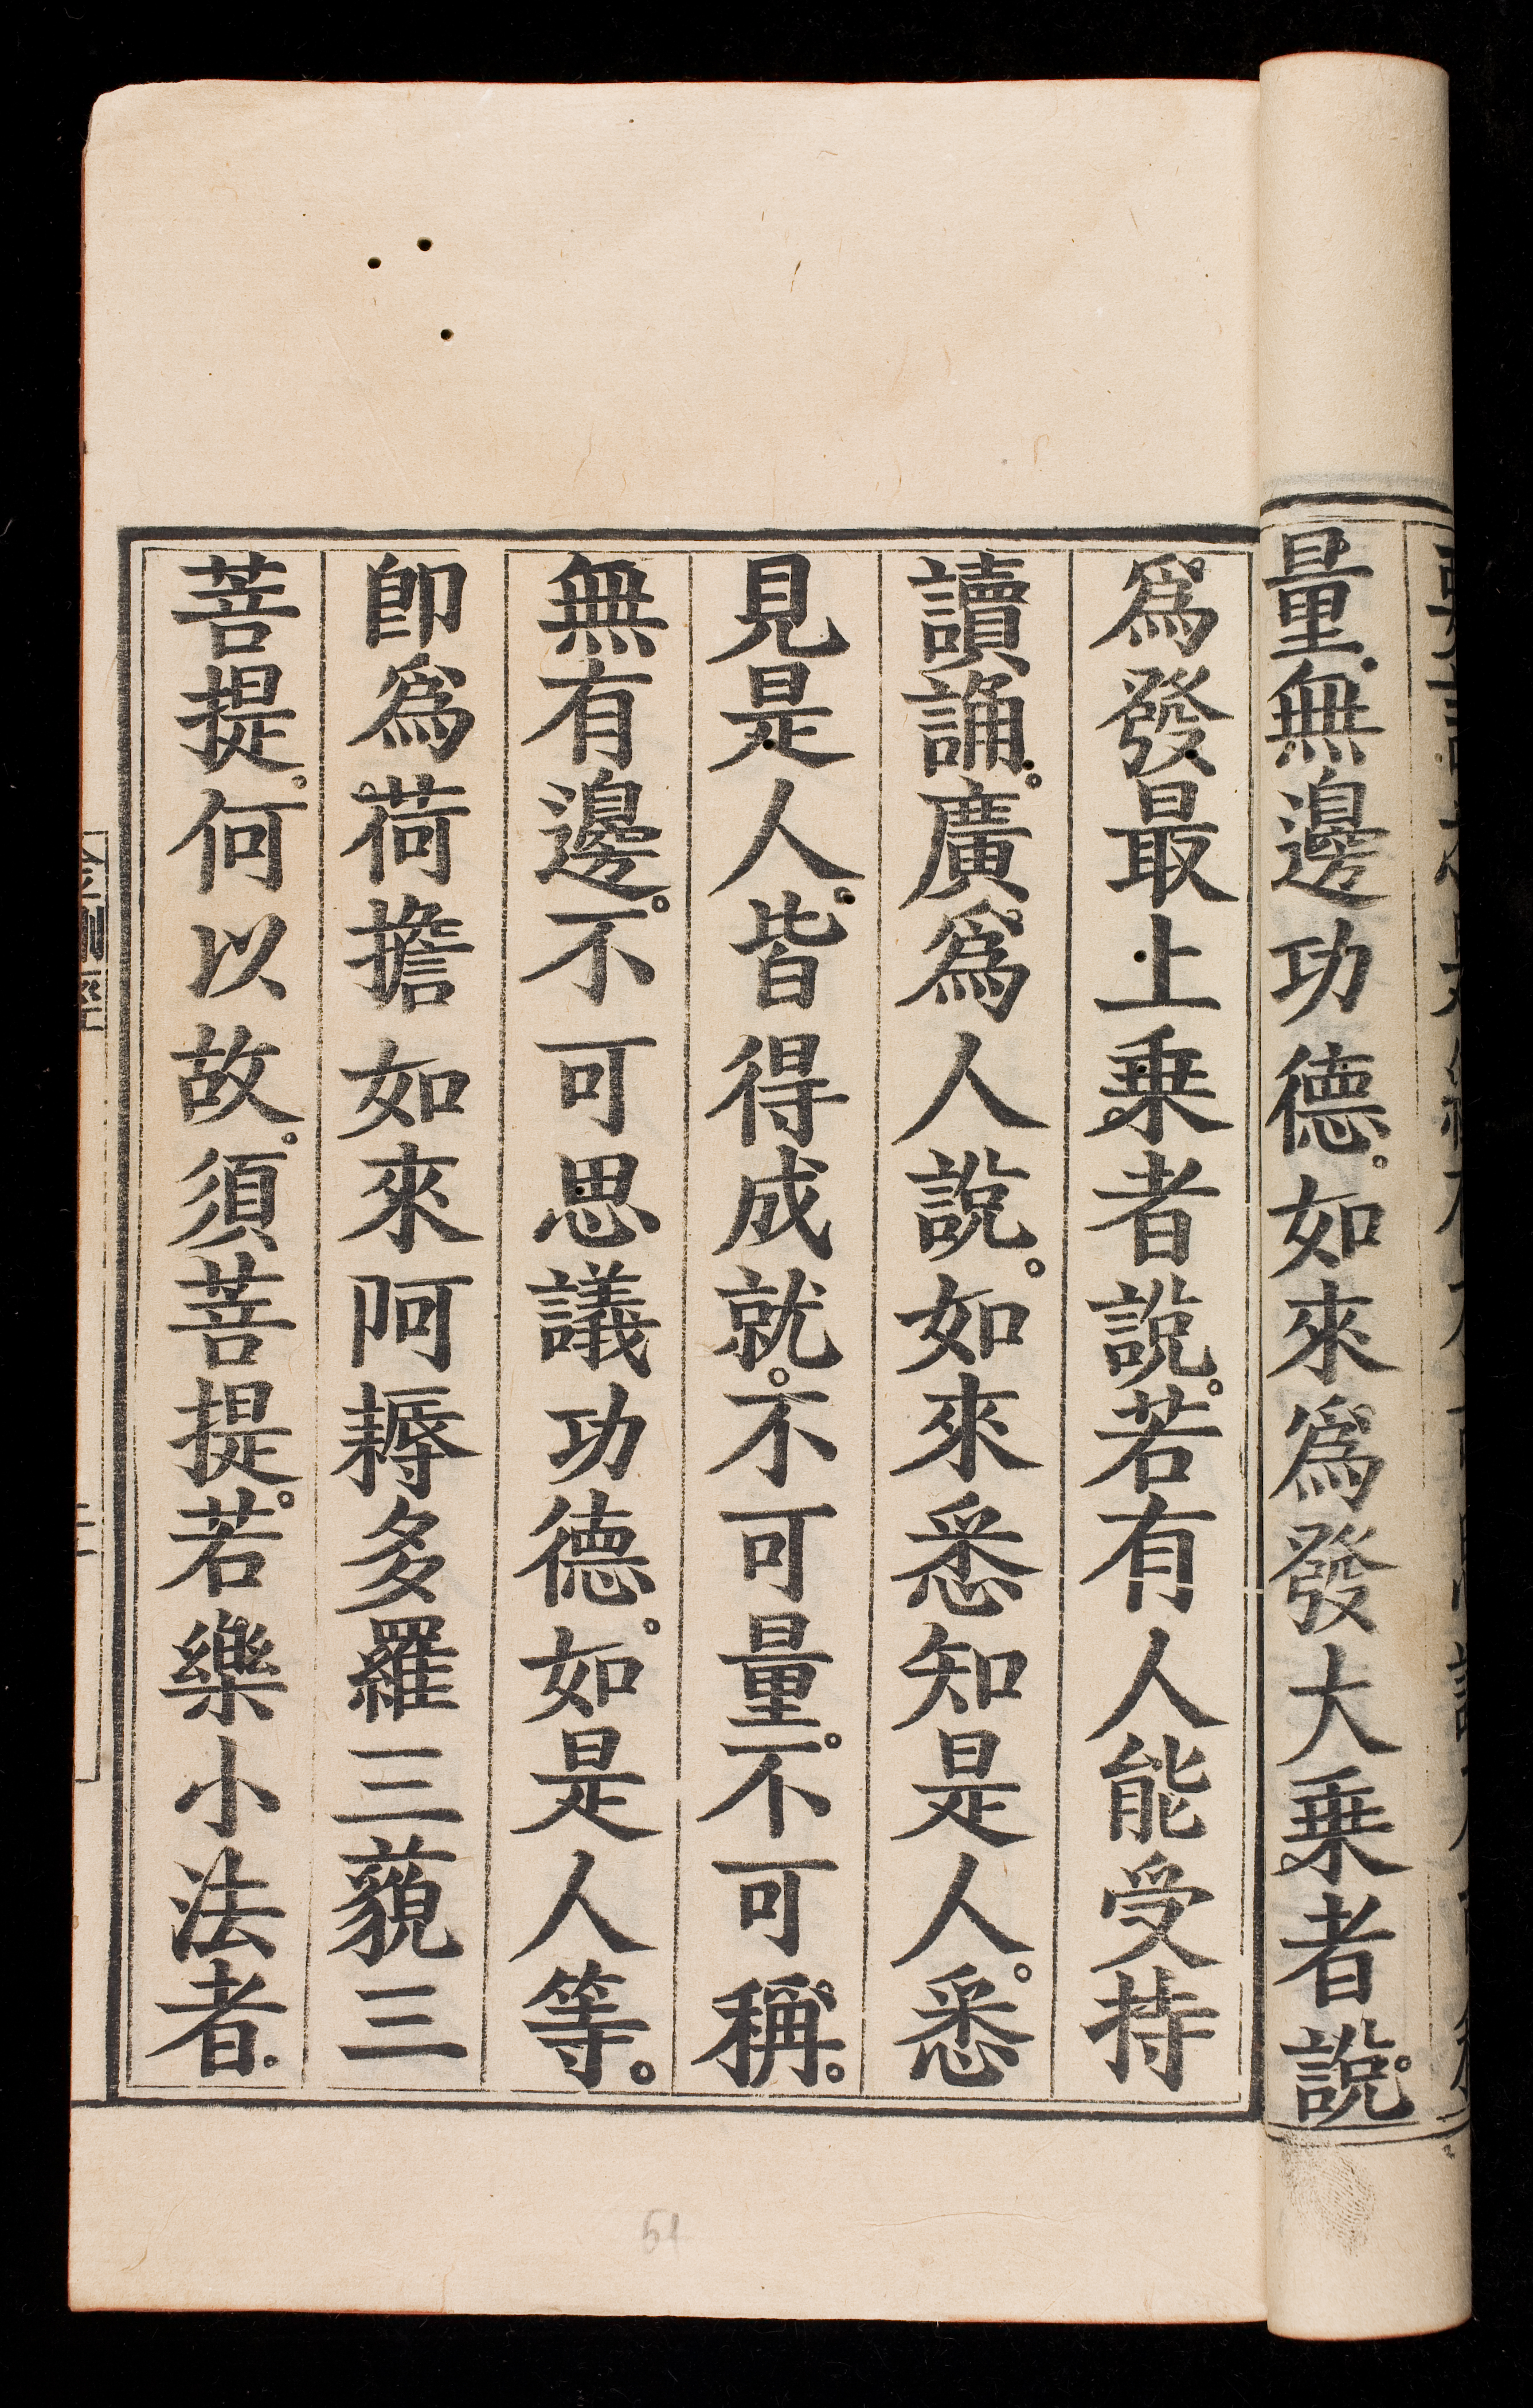 量無邊功德。如來爲發大乗者說。
爲發最上乗者說。若有人能受持
讀誦。廣爲人說。如來悉知是人。悉
見是人。皆得成就。不可量。不可稱。
無有邊。不可思議功德。如是人等。
卽爲荷擔如來阿耨多羅三藐三
菩提。何以故。須菩提。若樂小法者。
51